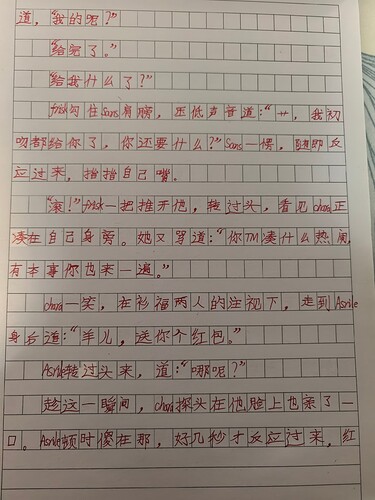 道，“我的呢？”
“给完了。”
“给我什么了？”
frisk勾住Sans肩膀，压低声音道：“艹，我初
吻都给你了，你还要什么？”Sans一愣，随即反
应过来，指指自己嘴。
“滚！”frisk一把推开他，转过头，看见chara正
凑在自己身旁。她又骂道：“你TM凑什么热闹，
有本事你也来一遍。”
chara一笑，在衫福两人的注视下，走到Asriel
身后道：“羊儿，送你个红包。”
Asriel转过头来，道：“哪呢？”
趁这一瞬间，chara探头在他脸上也亲了一
口。Asriel顿时傻在那，好几秒才反应过来，红